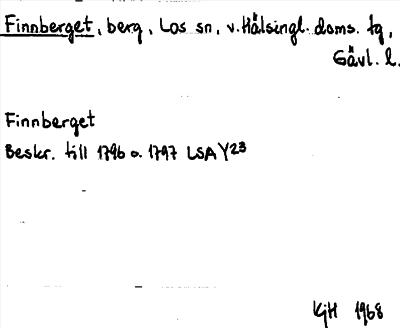 Finnberget, berg, Los sn, v. Hälsingl. doms. tg,
Gävl. l.
Finnberget
Beskr. till 1796 o. 1797 LSA Y23
KjH 1968